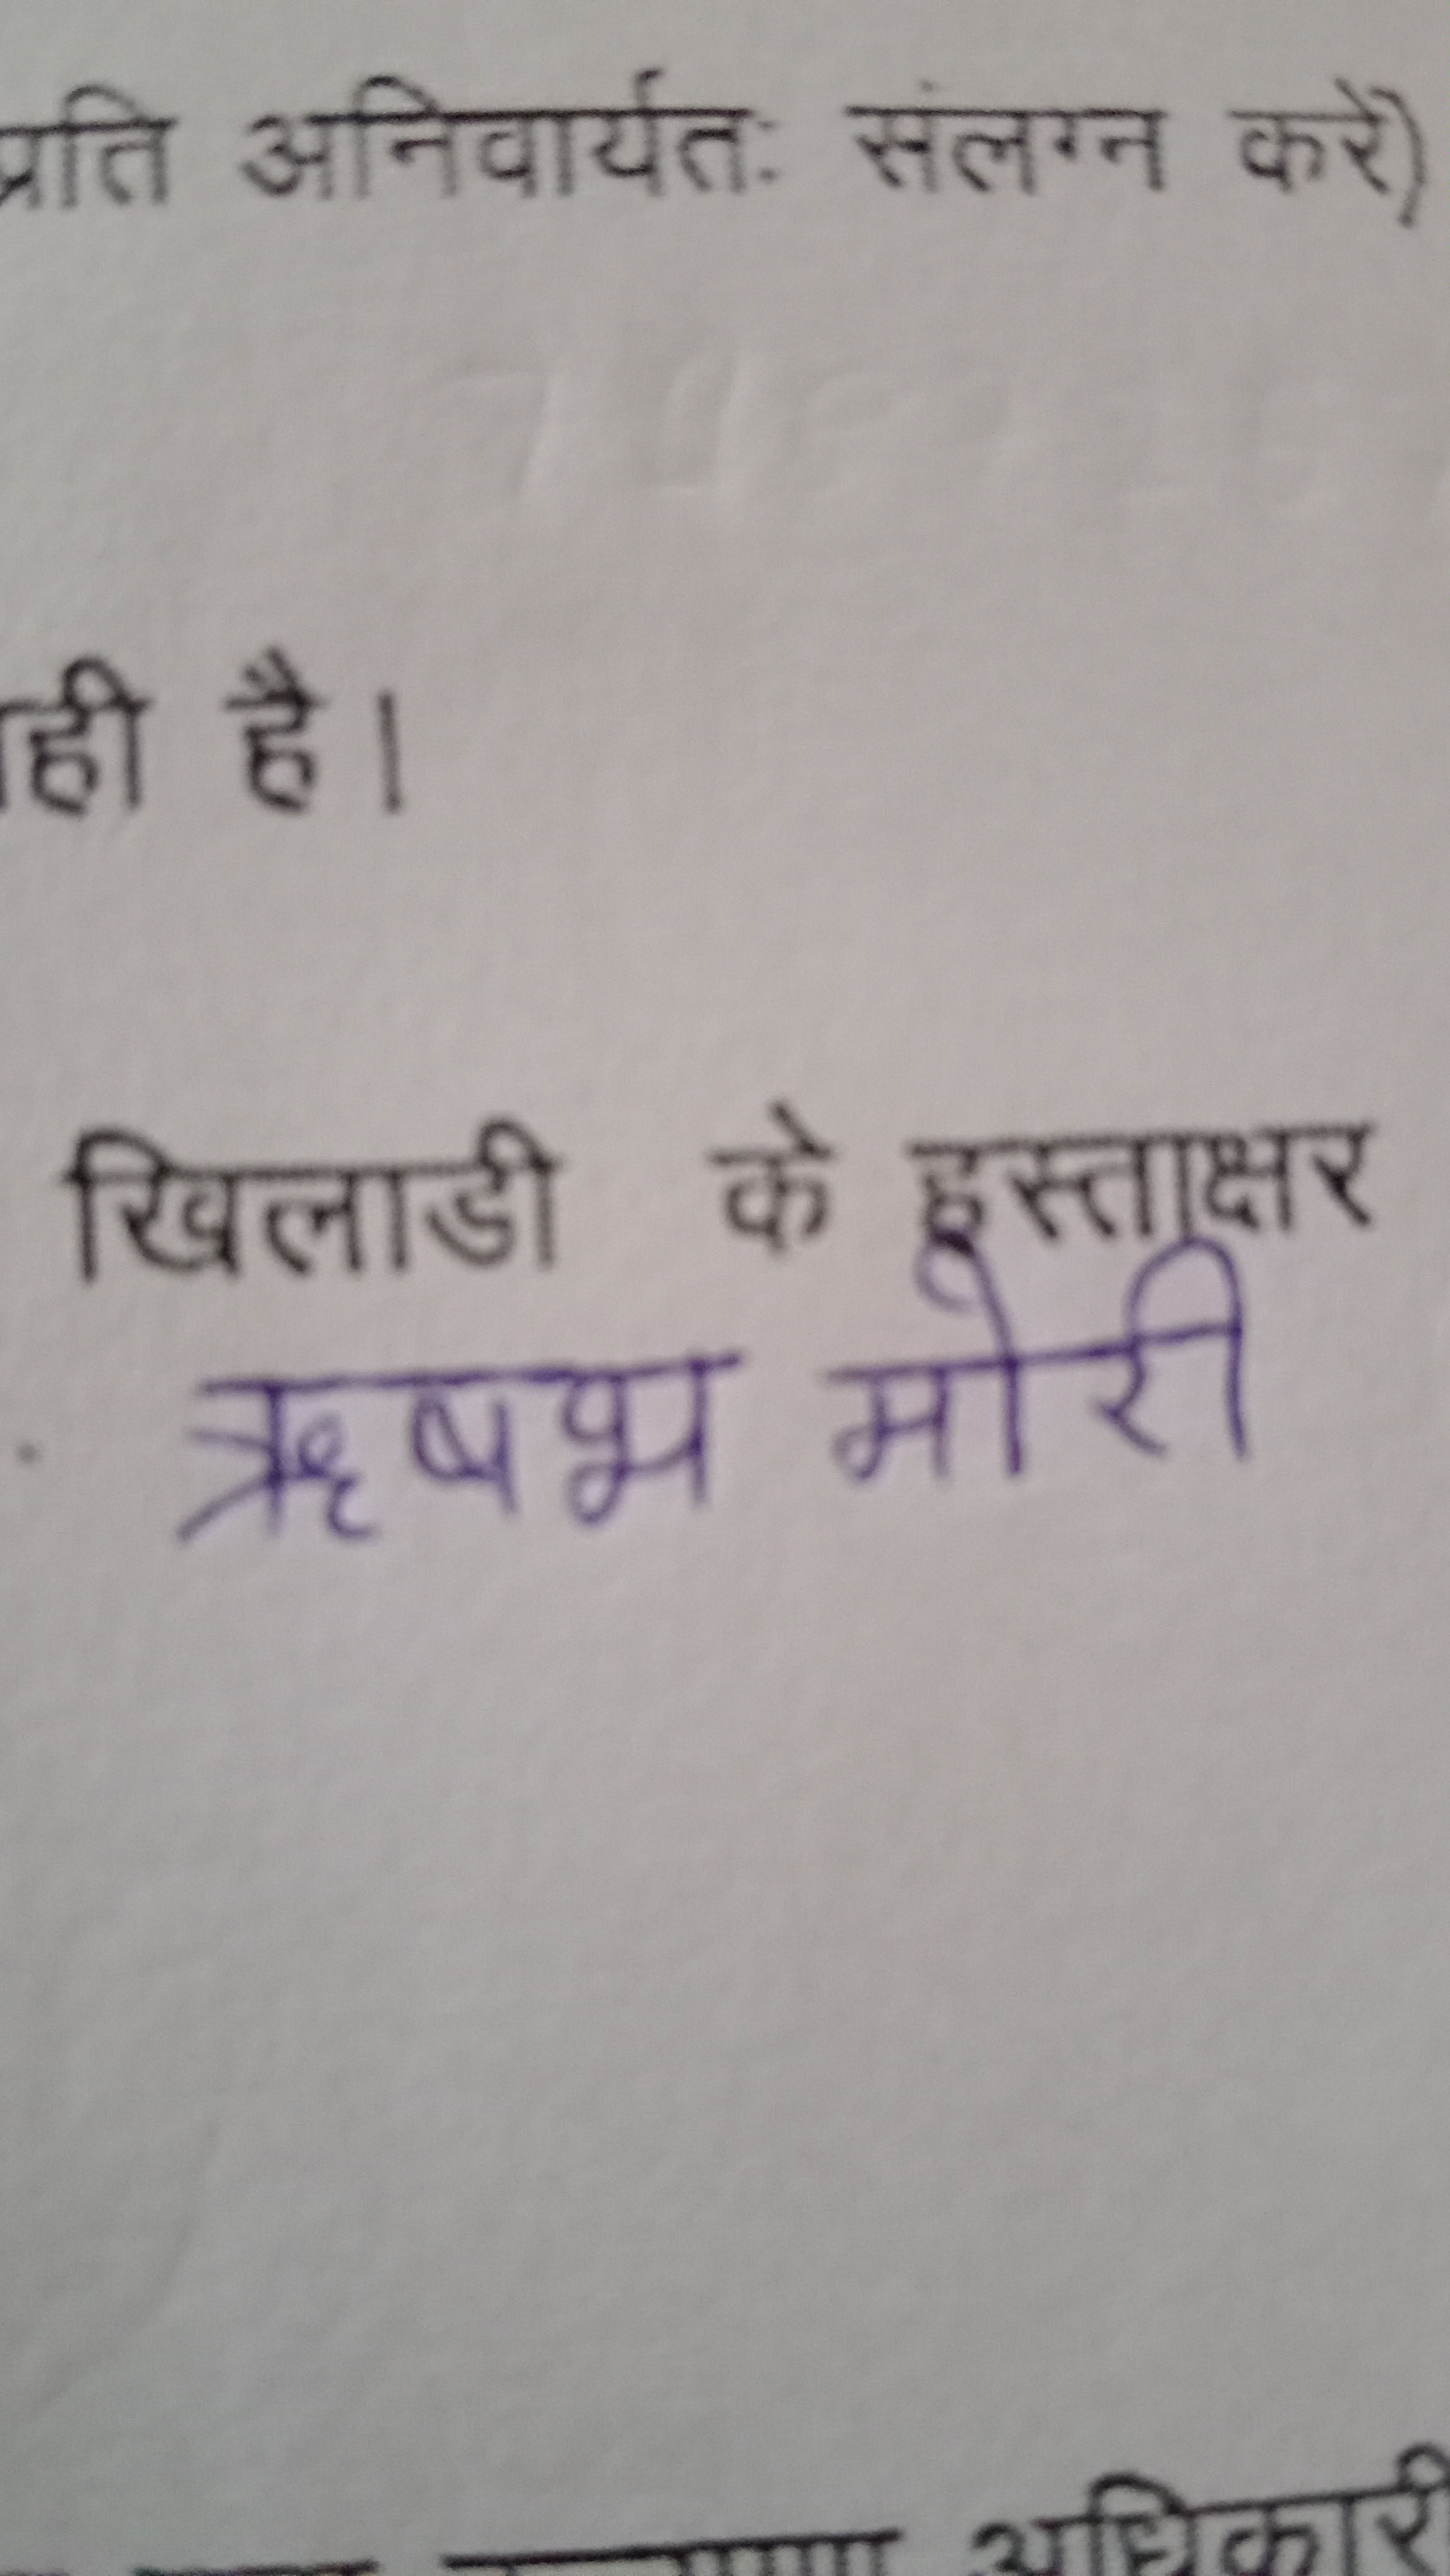 प्रति अनिवार्यतः संलग्न करें)
ही है।
खिलाडी के हस्ताक्षर
ऋषभ मोरी
अधिकारी